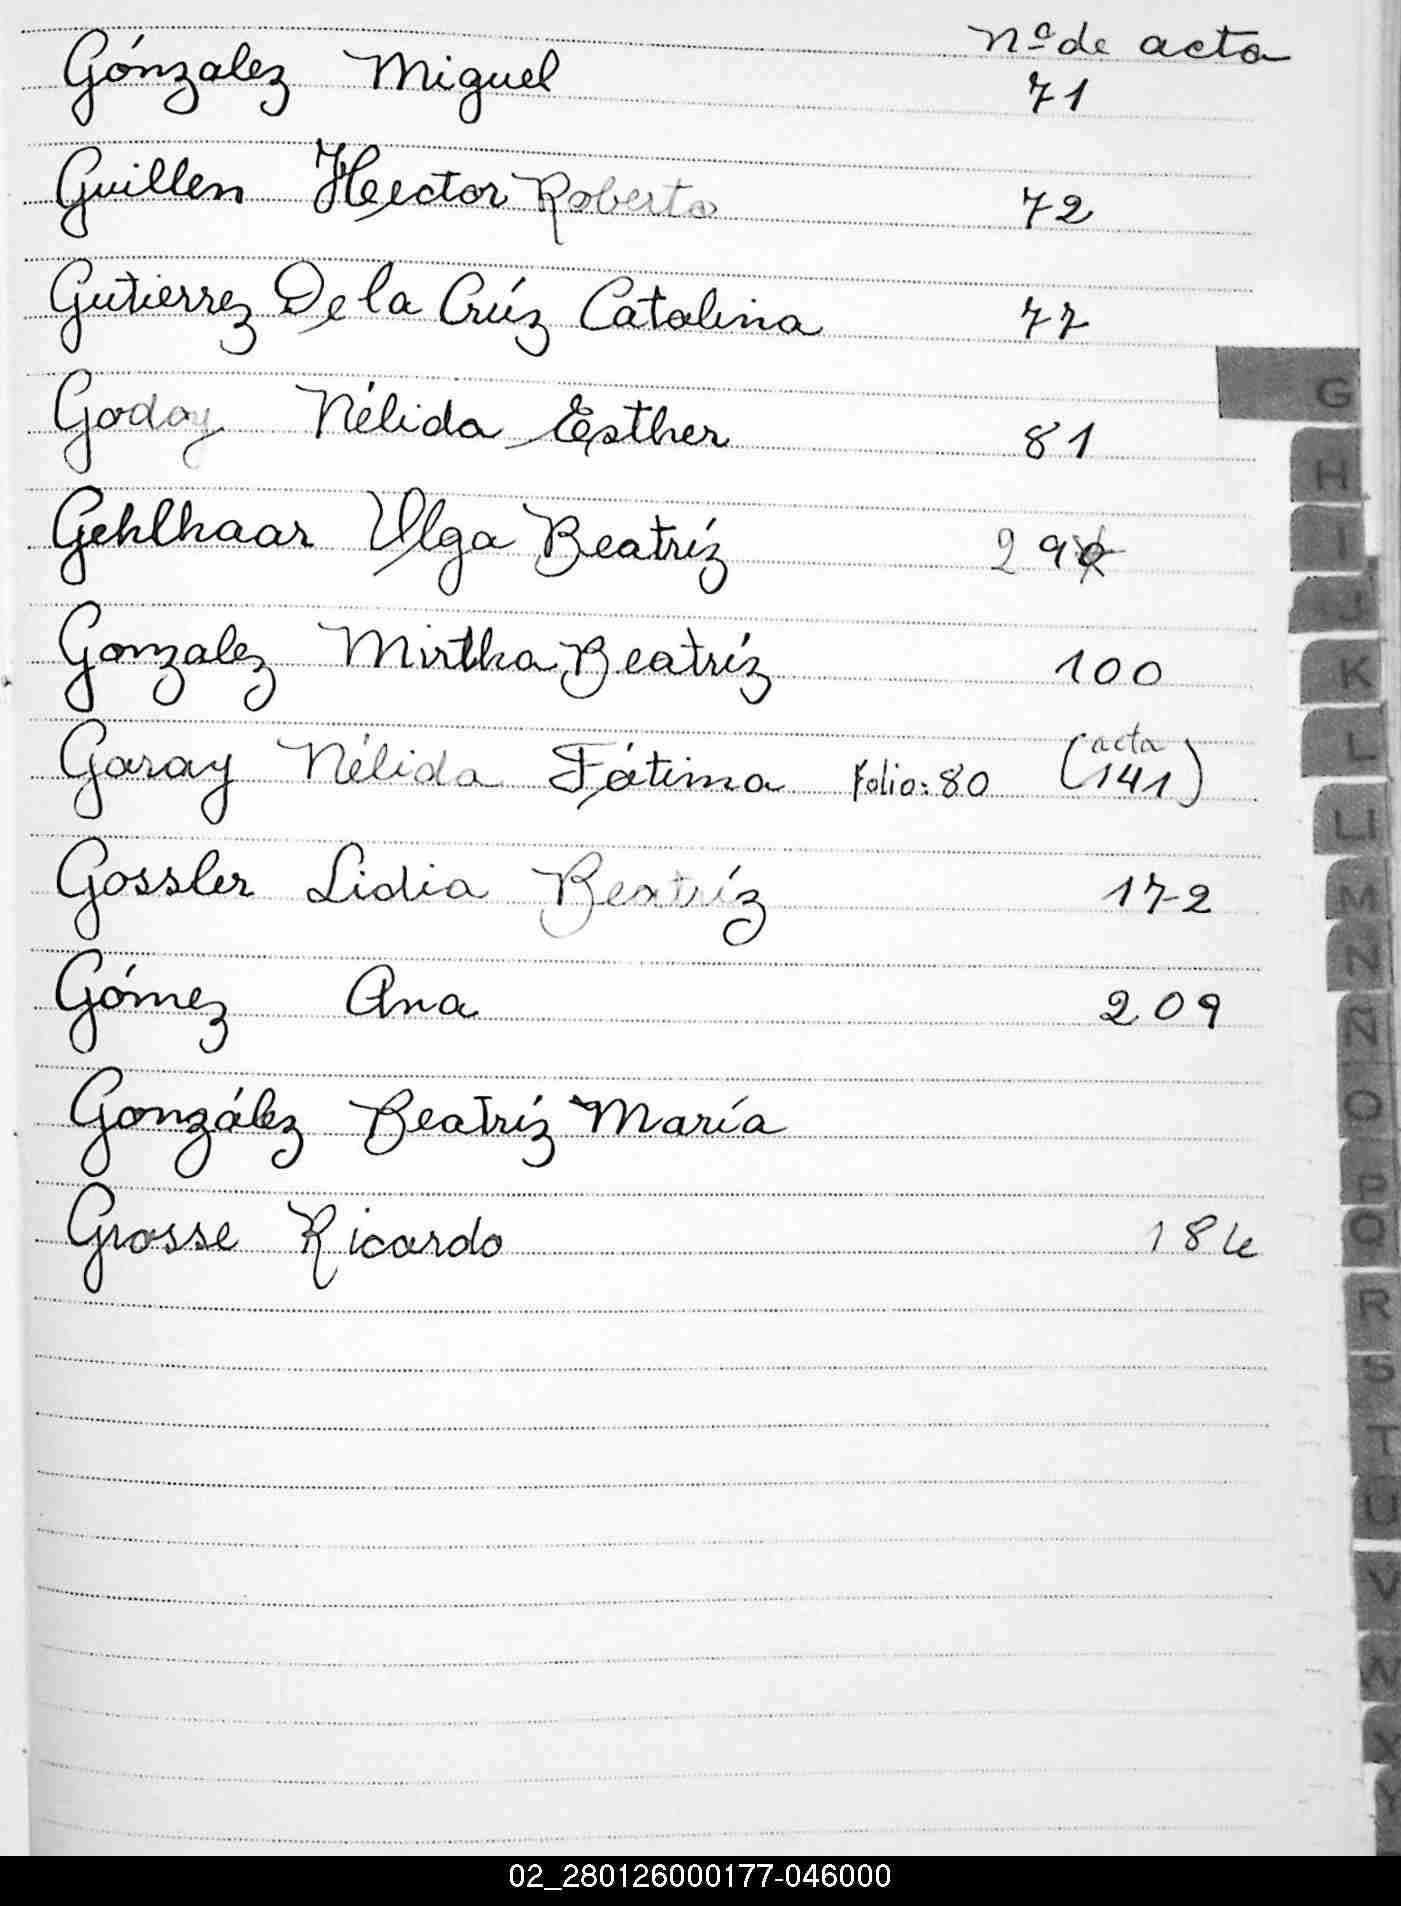 Nº de acta
Gónzalez Miguel 71
Guillen Hector Roberto 72
Gutierrez De la Crúz Catalina 77
Godoy Nélida Esther 81
Gehlhaar Olga Beatríz 29
Gonzalez Mirtha Beatríz 100
Garay Nélida Fátima Folio: 80 (acta 141)
Gossler Lidia Beatríz 172
Gómez Ana 209
González Beatríz María
Grosse Ricardo 184
G
H
I
J
K
L
Ll
M
N
Ñ
O
P
Q
R
S
T
U
V
W
X
Y
02_280126000177-046000